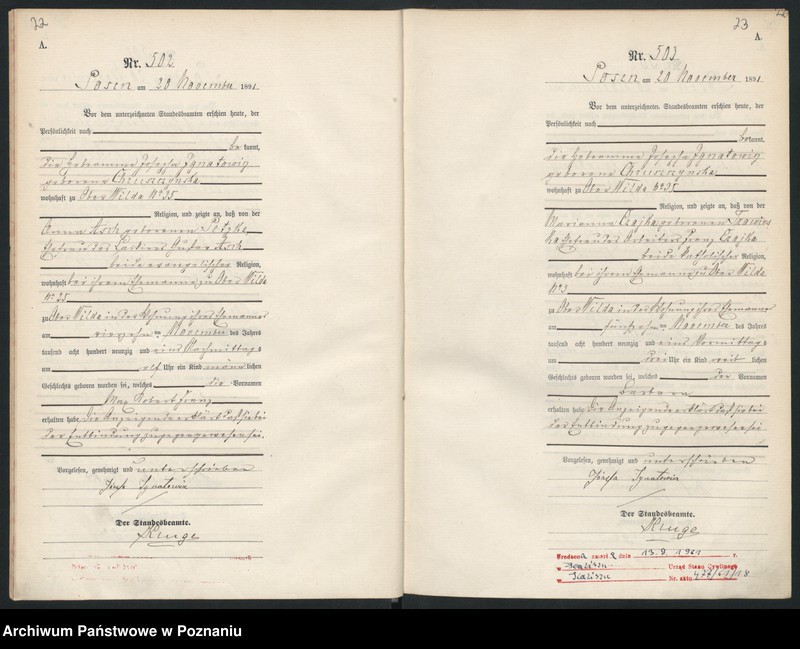 22
A.
Nr. 502
Posen am 20 November 1891
Vor dem unterzeichneten Standesbeamten erschien heute, der
Persönlichkeit nach
be kannt,
die Hebamme Josepha Ignatowicz
geborene
wohnhaft zu Ober Wilda No 35
Religion, und zeigte an, daß von der
Anna Asch geborenen
Ehefrau des Asch
beide evangelischer Religion,
wohnhaft bei ihrem Ehemanne zu Ober Wilda
No 35
zu Ober Wilda in der Wohnung ihres Ehemannes
am vierzehnten November des Jahres
tausend acht hundert neunzig und eins Nachmittags
um elf Uhr ein Kind männlichen
Geschlechts geboren worden sei, welches die Vornamen
Max Robert Franz
erhalten habe. Die Anzeigende erklärt daß sie bei
der Entbindung zugegen gewesen sei.
Vorgelesen, genehmigt und unterschrieben
Józefa Ignatowicz
Der Standesbeamte.
Kluge
23
A.
Nr. 503
Posen am 20 November 1891
Vor dem unterzeichneten Standesbeamten erschien heute, der
Persönlichkeit nach
bekannt,
die Hebamme Josepha Ignatowicz
geborene
wohnhaft zu Ober Wilda No 35
Religion, und zeigte an, daß von der
Marianna Czajka geborenen
Ehefrau des Arbeiters Franz Czajka
beide katholischer Religion,
wohnhaft bei ihrem Ehemanne zu Ober Wilda
No 3
zu Ober Wilda in der Wohnung ihres Ehemannes
am fünfzehnten November des Jahres
tausend acht hundert neunzig und eins Vormittags
um drei Uhr ein Kind weiblichen
Geschlechts geboren worden sei, welches den Vornamen
Barbara
erhalten habe. Die Anzeigende erklärt daß sie bei
der Entbindung zugegen gewesen sei
Vorgelesen, genehmigt und unterschrieben
Józefa Ignatowicz
Der Standesbeamte.
Kluge
dnia 13.9.1961 r.
w Kaliszu Urząd Stanu Cywilnego
w Kaliszu Nr. aktu
Archiwum Państwowe w Poznaniu